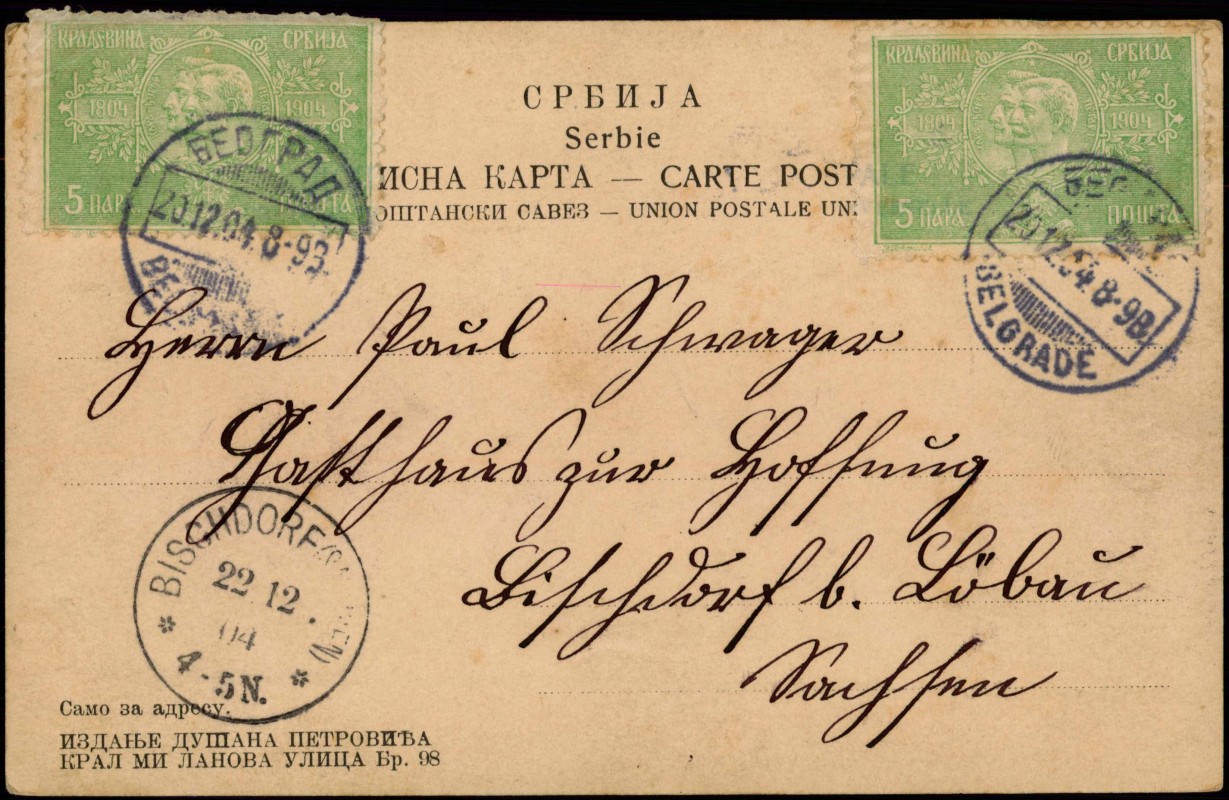 КРАЉЕВИНА СРБИЈА
1804 1904
5 ПАРА
КРАЉЕВИНА СРБИЈА
1804 1904
5 ПАРА ПОШТА
СРБИЈА
Serbie
ИСНА КАРТА — CARTE POST
ОШТАНСКИ САВЕЗ — UNION POSTALE UN
БЕОГРАД
20.12.04.8-9В.
20.12.04.8-9В.
BELGRADE
Herrn Paul Schwager
Gasthaus zur Hoffnung
Bischdorf b. Löbau
Sachsen
BISCHDORF
22 12
04
4-5N.
Само за адресу.
ИЗДАЊЕ ДУШАНА ПЕТРОВИЋА
КРАЛ МИ ЛАНОВА УЛИЦА Бр. 98